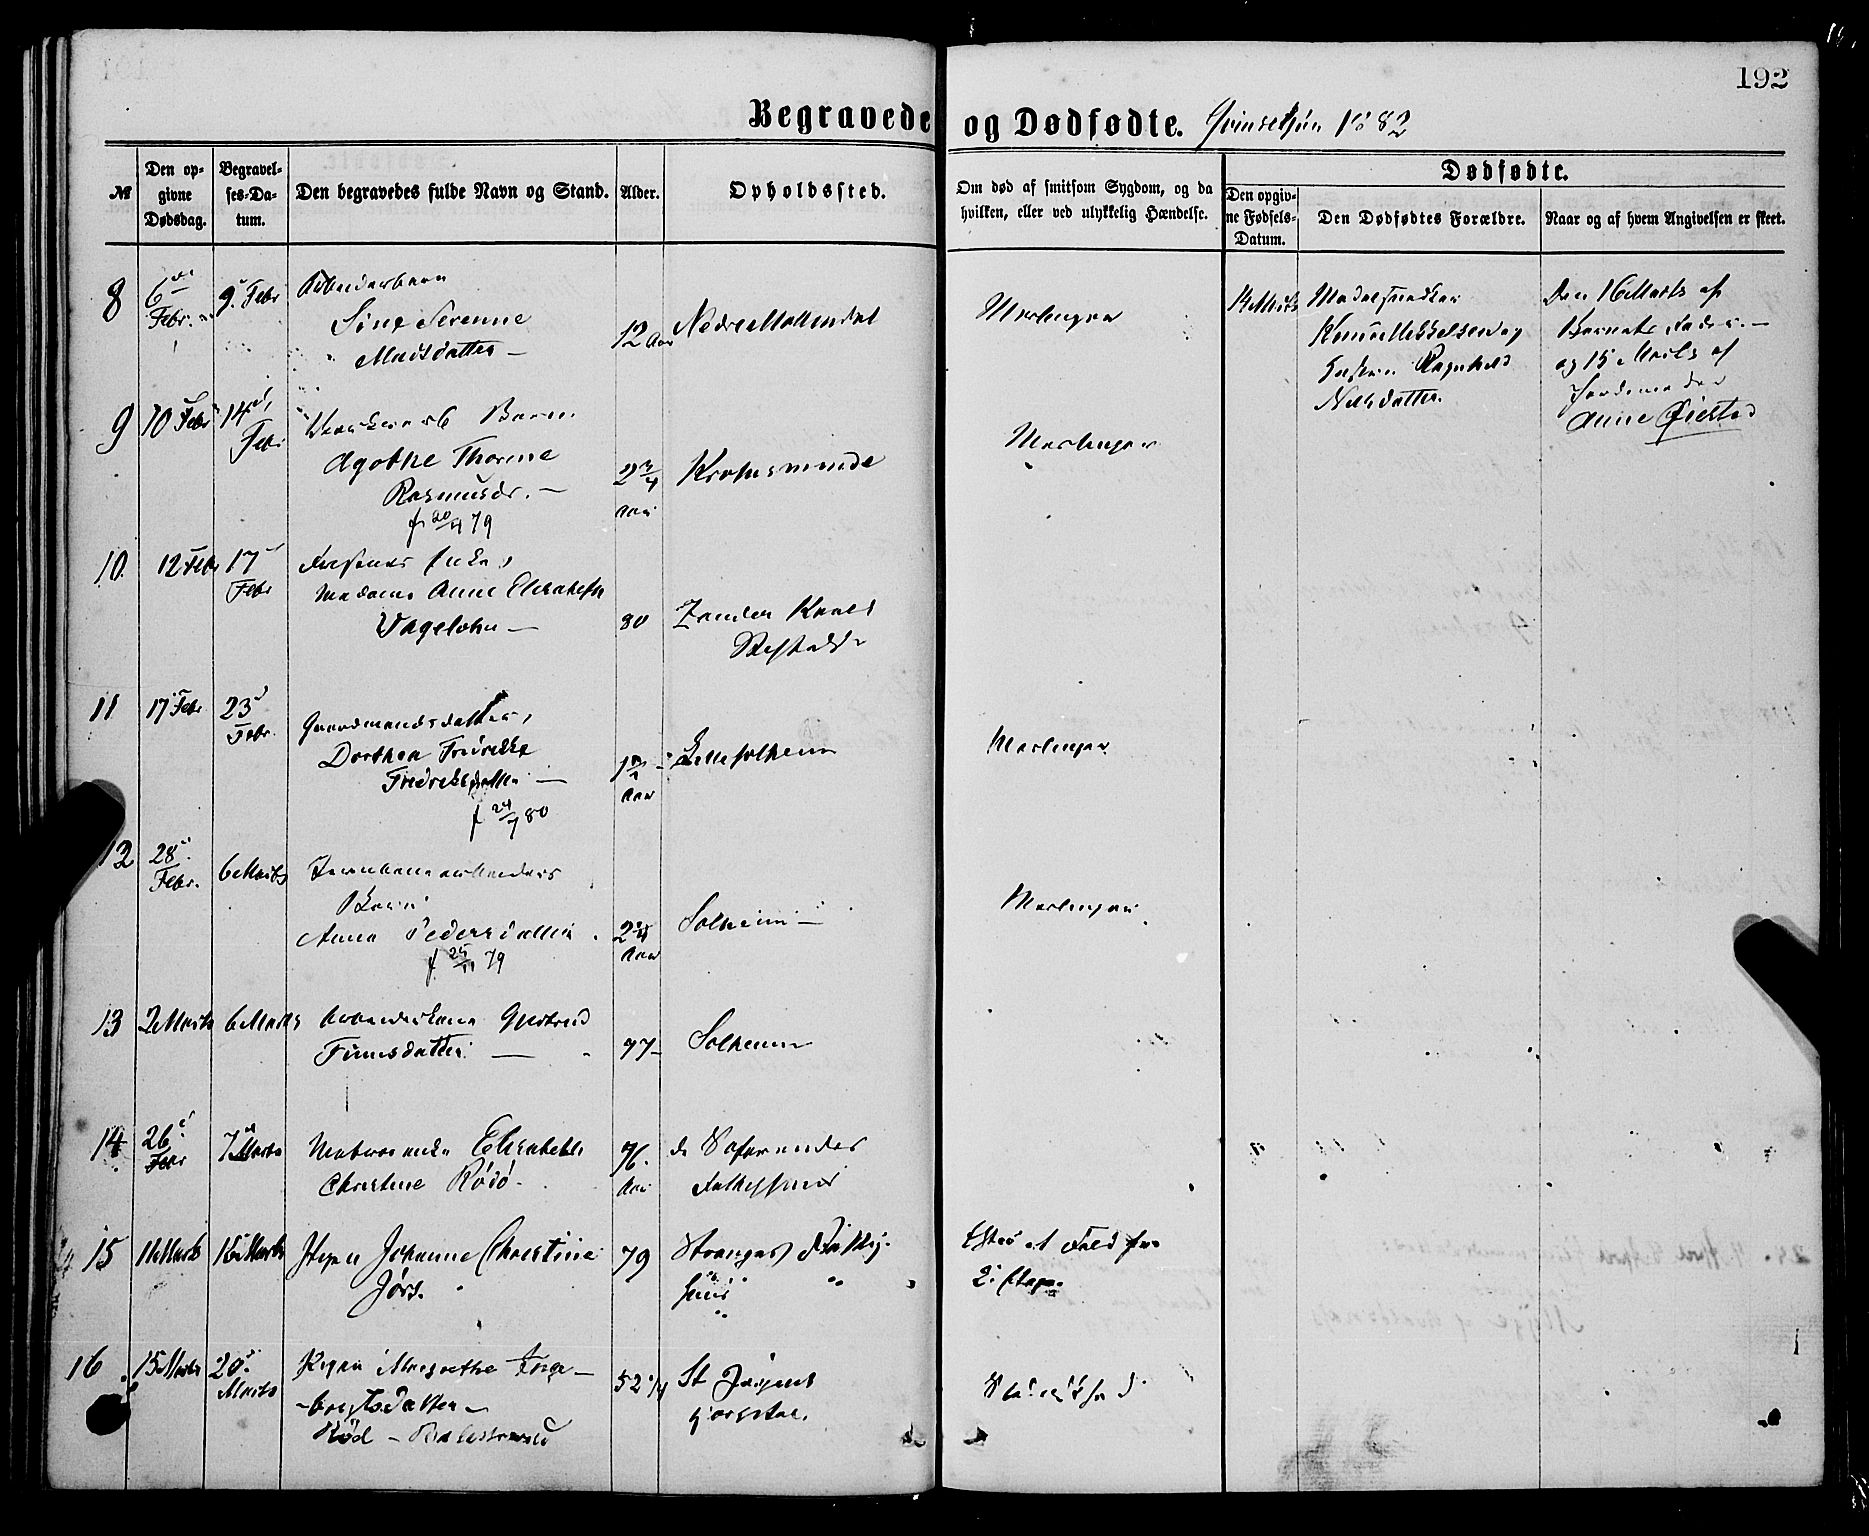 192
Begravede og Dødfødte. Qvindekjøn 1882
№
Den opgivne Dødsdag.
Begravelses-Datum.
Den begravedes fulde Navn og Stand.
Alder.
Opholdssted.
Om død af smitsom Sygdom, og da hvilken, eller ved ulykkelig Hændelse.
Dødfødte.
Den opgivne Fødsels-Datum.
Den Dødfødtes Forældre.
Naar og af hvem Angivelsen er skeet.
8 6 Febr. 9 Febr Arbeiderbarn
Sine Serenne
Madsdatter
12 Aar Nedre Møllendal
Meslinger
14 Marts
Knud Mikkelsen og
Hustru Ragnhild
Nilsdatter.
Den 16 Marts af
Barnets Fader
og 15 Marts af
Jordemoder
Anne Øiestad
9 10 Febr 14 Febr
Barn
Agothe Thorine
Rasmusdr.
f. 20/4 79
2 3/4 Aar
Krohnsminde
Meslinger
10. 12 Febr 17 Febr
Enke,
Madame Anne Elisabeth
Vagelohn
80 Zander Kaaes
Stiftelse
11 17 Febr 23 Febr.
Gaardmandsdatter,
Dorthea Fredrikke
Fredriksdatter
f 24/7 80
1 1/2 Aar
Lille Solheim
Meslinger
12 28 Febr. 6 Marts
Jernbanearbeiders
Barn
Anna Pedersdatter
f 25/11 79
2 1/4 Aar
Solheim
Meslinger
13 2 Marts 6 Marts
Arbeiderkone Gjertrud
Finnsdatter
77 Solheim
14 26 Febr 7 Marts
Matrosenke Elisabeth
Christine Rödö.
76 Aar
de Søfarendes
Fattighuus
15 11 Marts 15 Marts
Pigen Johanne Christine
Jörs.
79 Stranges Fattighuus
Efter et Fald fra
2. Etage
16 15 Marts 20 Marts
Pigen Margrethe Ingebregtsdatter
Röd - Balestrand
52 1/4 St Jørgens
Spedalskhed